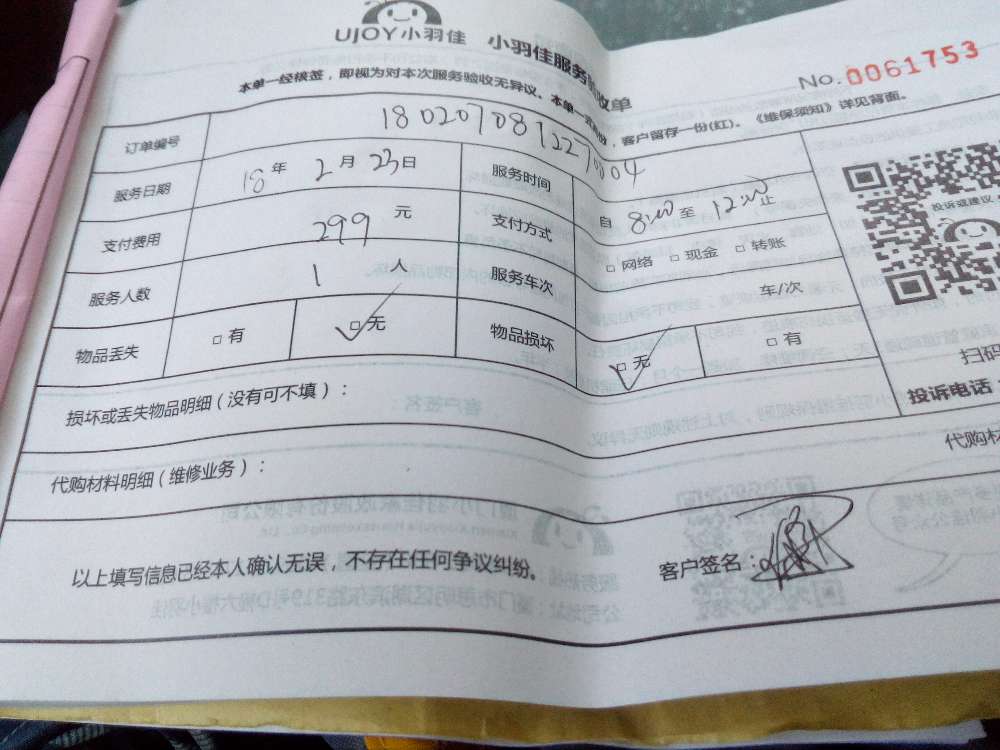 UJOY小羽佳 小羽佳服务验收单
No.0061753
本单一经核签，即视为对本次服务验收无异议。本单一式 份，客户留存一份(红)。《维保须知》详见背面。
订单编号 180207081227004
服务日期 18年2月23日 服务时间 自8:00至12:00止
支付费用 299元 支付方式 □网络 □现金 □转账
服务人数 1人 服务车次 车/次
物品丢失 □有 □无 物品损坏 □无 □有
投诉或建议
扫码
投诉电话：
损坏或丢失物品明细（没有可不填）：
代购材料明细（维修业务）：
代购材
以上填写信息已经本人确认无误，不存在任何争议纠纷。
客户签名：